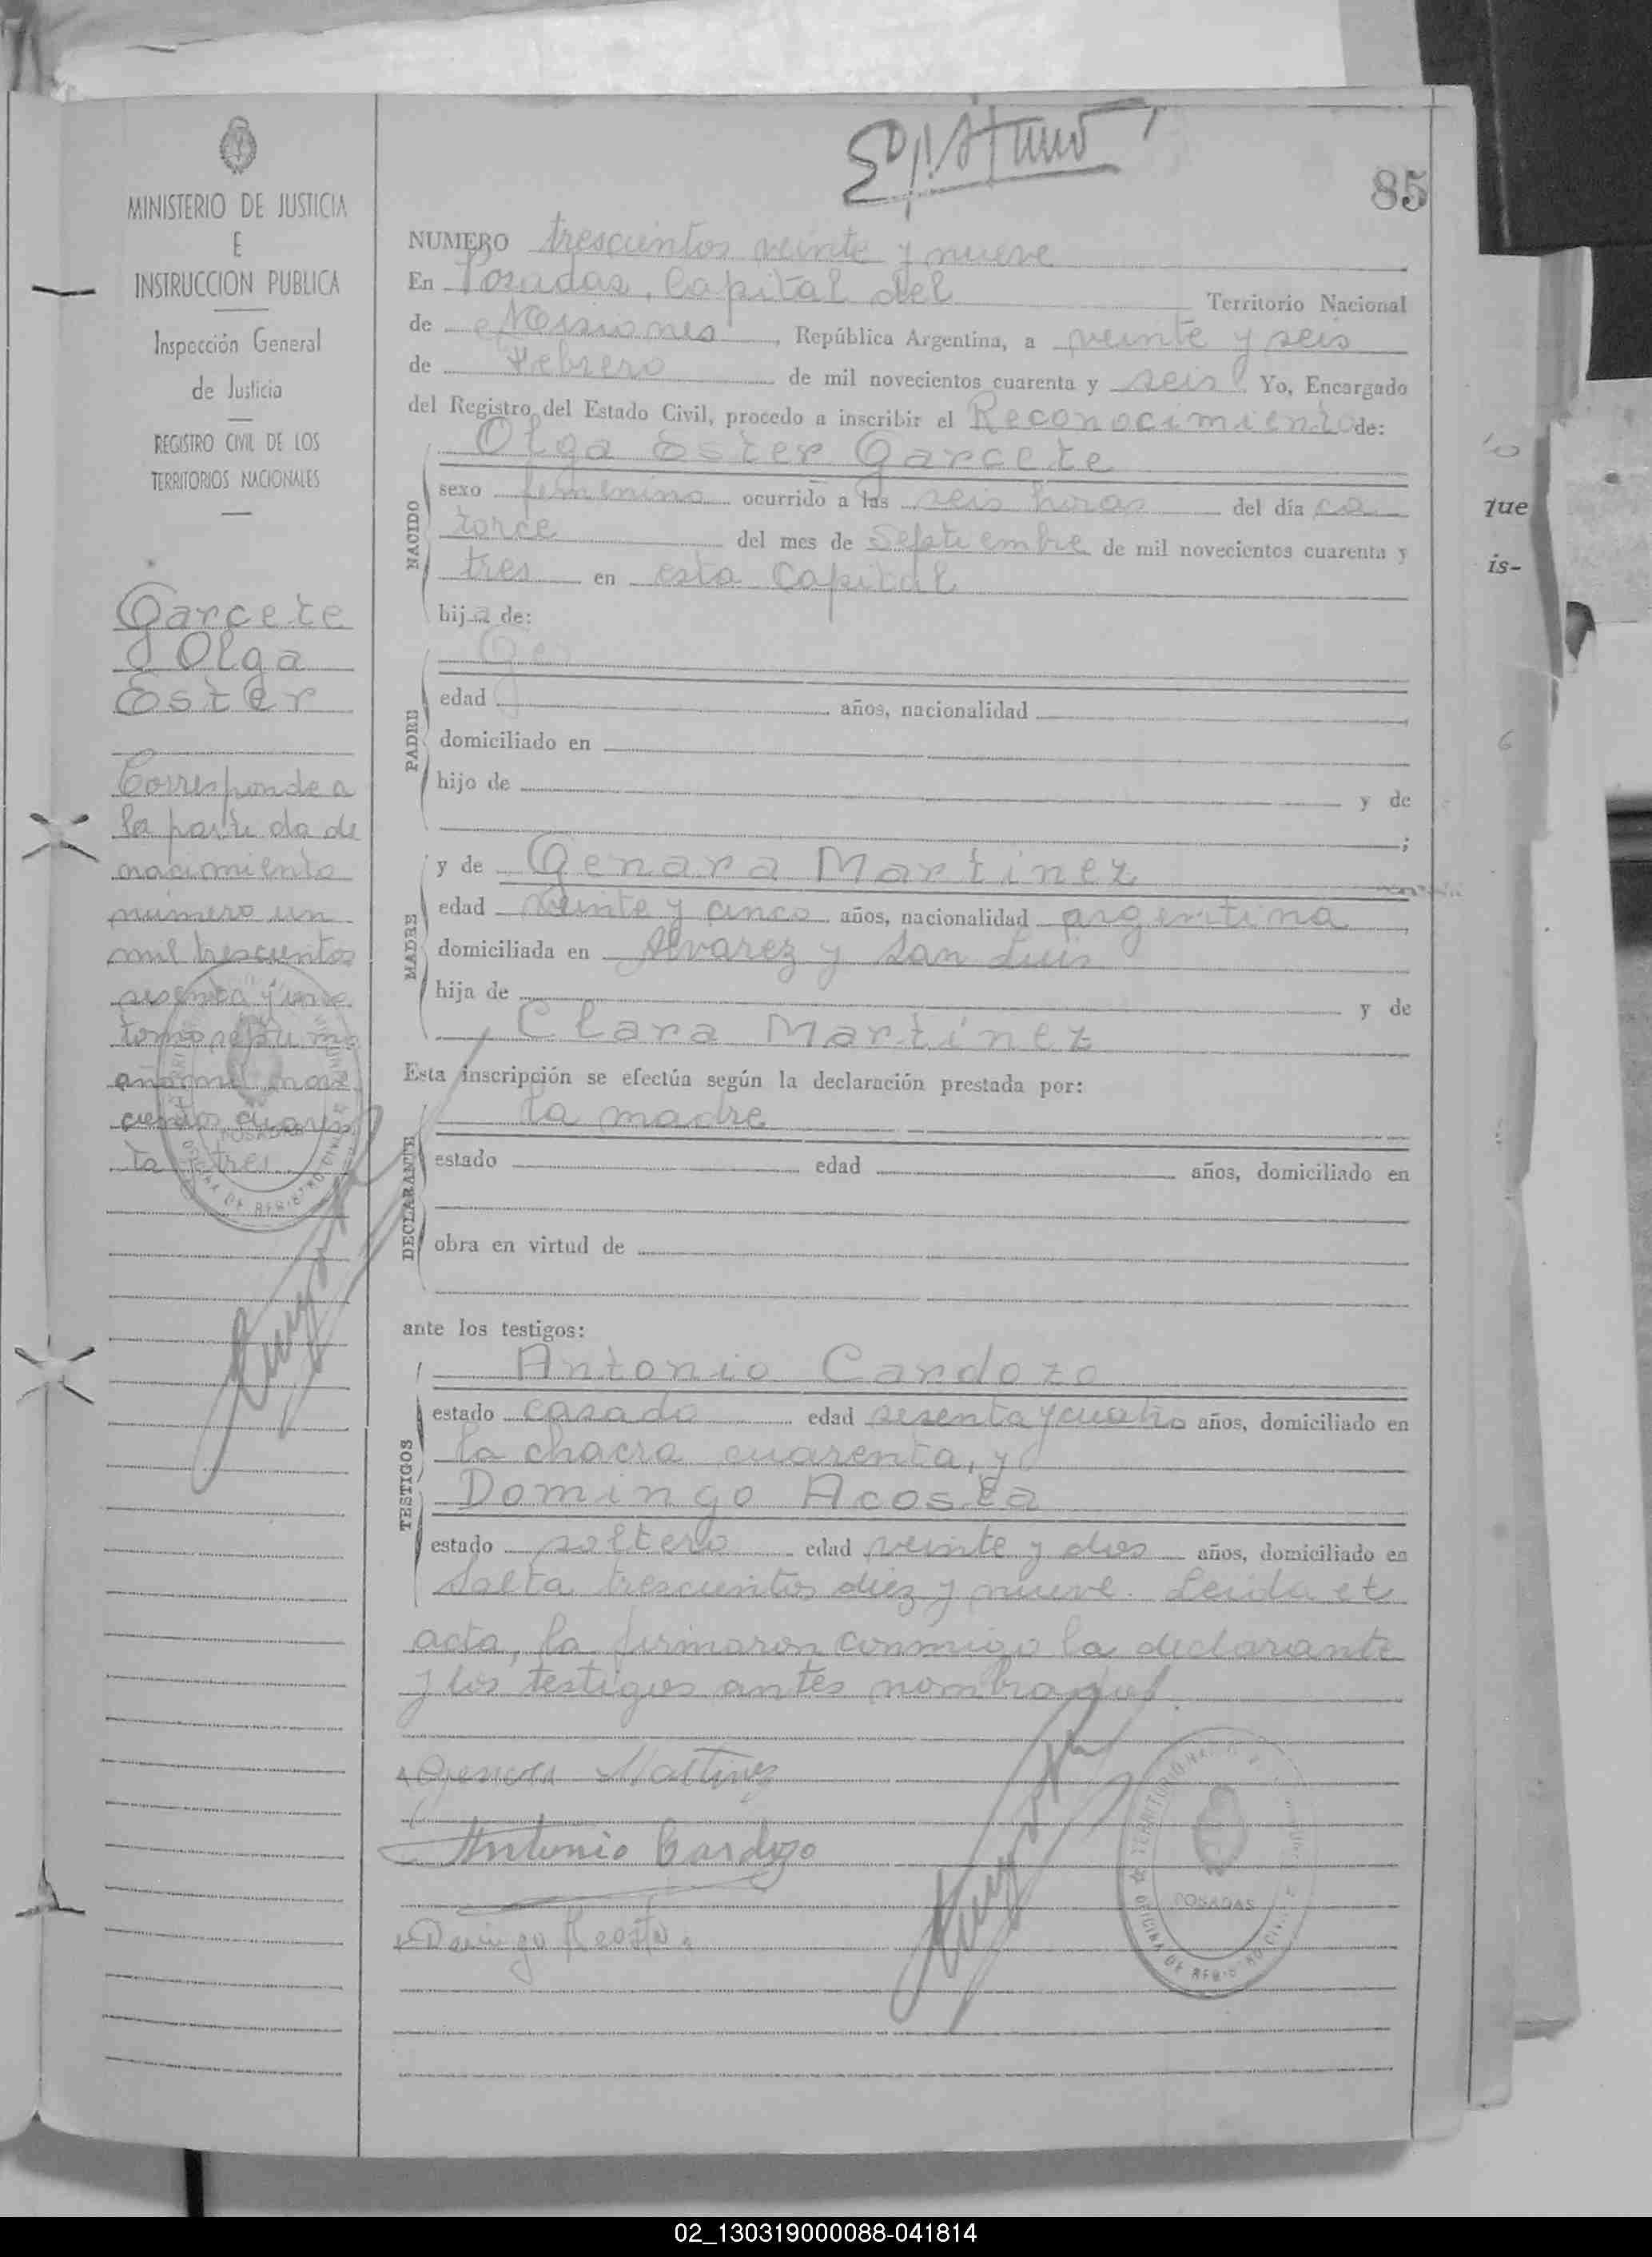 85
MINISTERIO DE JUSTICIA
E
INSTRUCCION PUBLICA
Inspección General
de Justicia
REGISTRO CIVIL DE LOS
TERRITORIOS NACIONALES
Garcete
Olga
Ester
Corresponde a
la partida de
nacimiento
número un
mil trescientos
sesenta y uno
tomo séptimo
año mil nove
cientos cuaren
ta y tres
NUMERO trescientos veinte y nueve
En Posadas, Capital del Territorio Nacional
de Misiones, República Argentina, a veinte y seis
de Febrero de mil novecientos cuarenta y seis. Yo, Encargado
del Registro del Estado Civil, procedo a inscribir el Reconocimiento de:
NACIDO
Olga Ester Garcete
sexo femenino ocurrido a las seis horas del día ca
torce del mes de Septiembre de mil novecientos cuarenta y
tres en esta Capital
hija de:
PADRE
Ge
edad años, nacionalidad
domiciliado en
hijo de y de
;
MADRE
y de Genara Martinez
edad veinte y cinco años, nacionalidad argentina
domiciliada en Alvarez y San Luis
hija de y de
Clara Martínez
Esta inscripción se efectúa según la declaración prestada por:
DECLARANTE
la madre
estado edad años, domiciliado en
obra en virtud de
ante los testigos:
TESTIGOS
Antonio Cardozo
estado casado edad sesenta y cuatro años, domiciliado en
la chacra cuarenta, y
Domingo Acosta
estado soltero edad veinte y dos años, domiciliado en
Salta trescientos diez y nueve. Leida el
acta, la firmaron conmigo la declarante
y los testigos antes nombrados.
Genara Martinez
Antonio Cardozo
Domingo Acosta
POSADAS
OFICINA DE REGISTRO CIVIL
que
is-
02_130319000088-041814